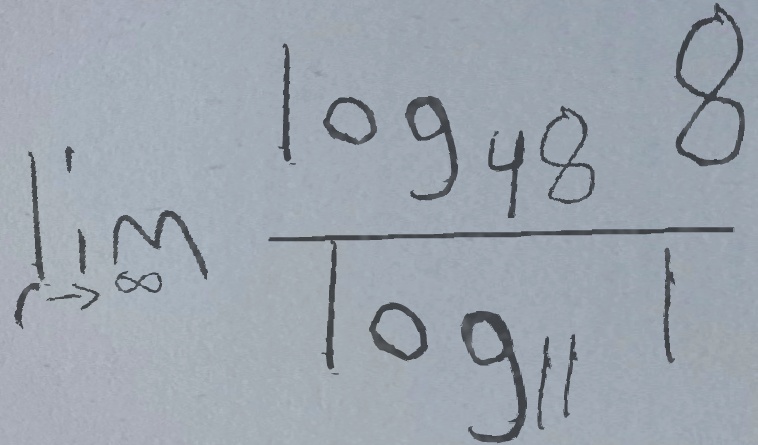 lim r→∞ log₄₈ 8 / log₁₁ 1